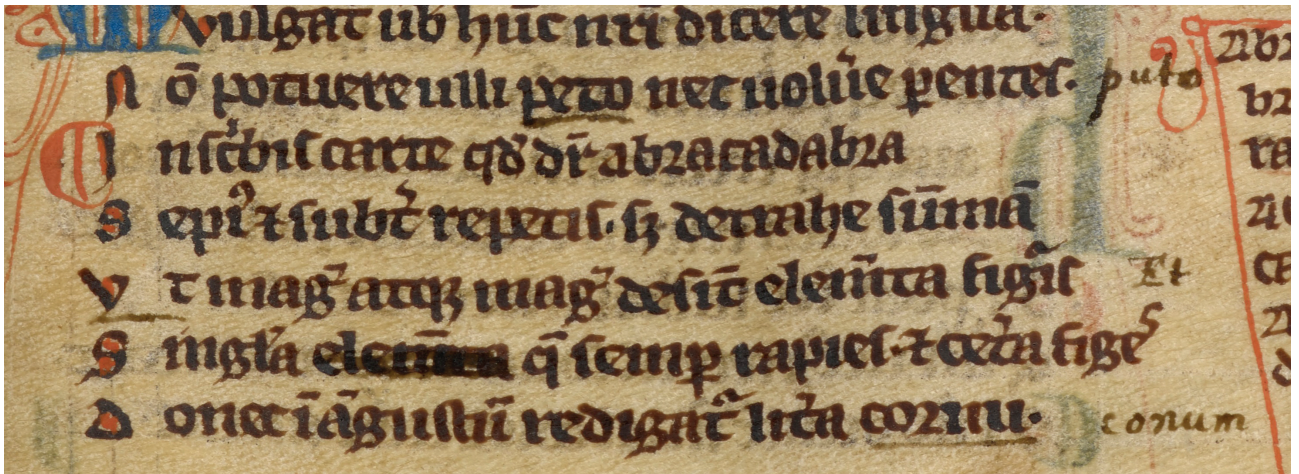 Vulgat ub hūc nr̄i dicere lingua.
Nō potuere ulli peto nec uolūe ꝑentes. puto
Inscͥbis carte qd̄ dr̄ abracadabra
Sepiꝰ ⁊ subt͛ repetis. sꝫ detrahe sūmā
Vt magͥ atqꝫ magͥ desīt elem̄ta figͥis Et
Singl̓a q̄ semꝑ rapies. ⁊ cet͛a figes
Donec ī āgustū redigatᷣ lit͛a cornu. conum
abra
br
ra